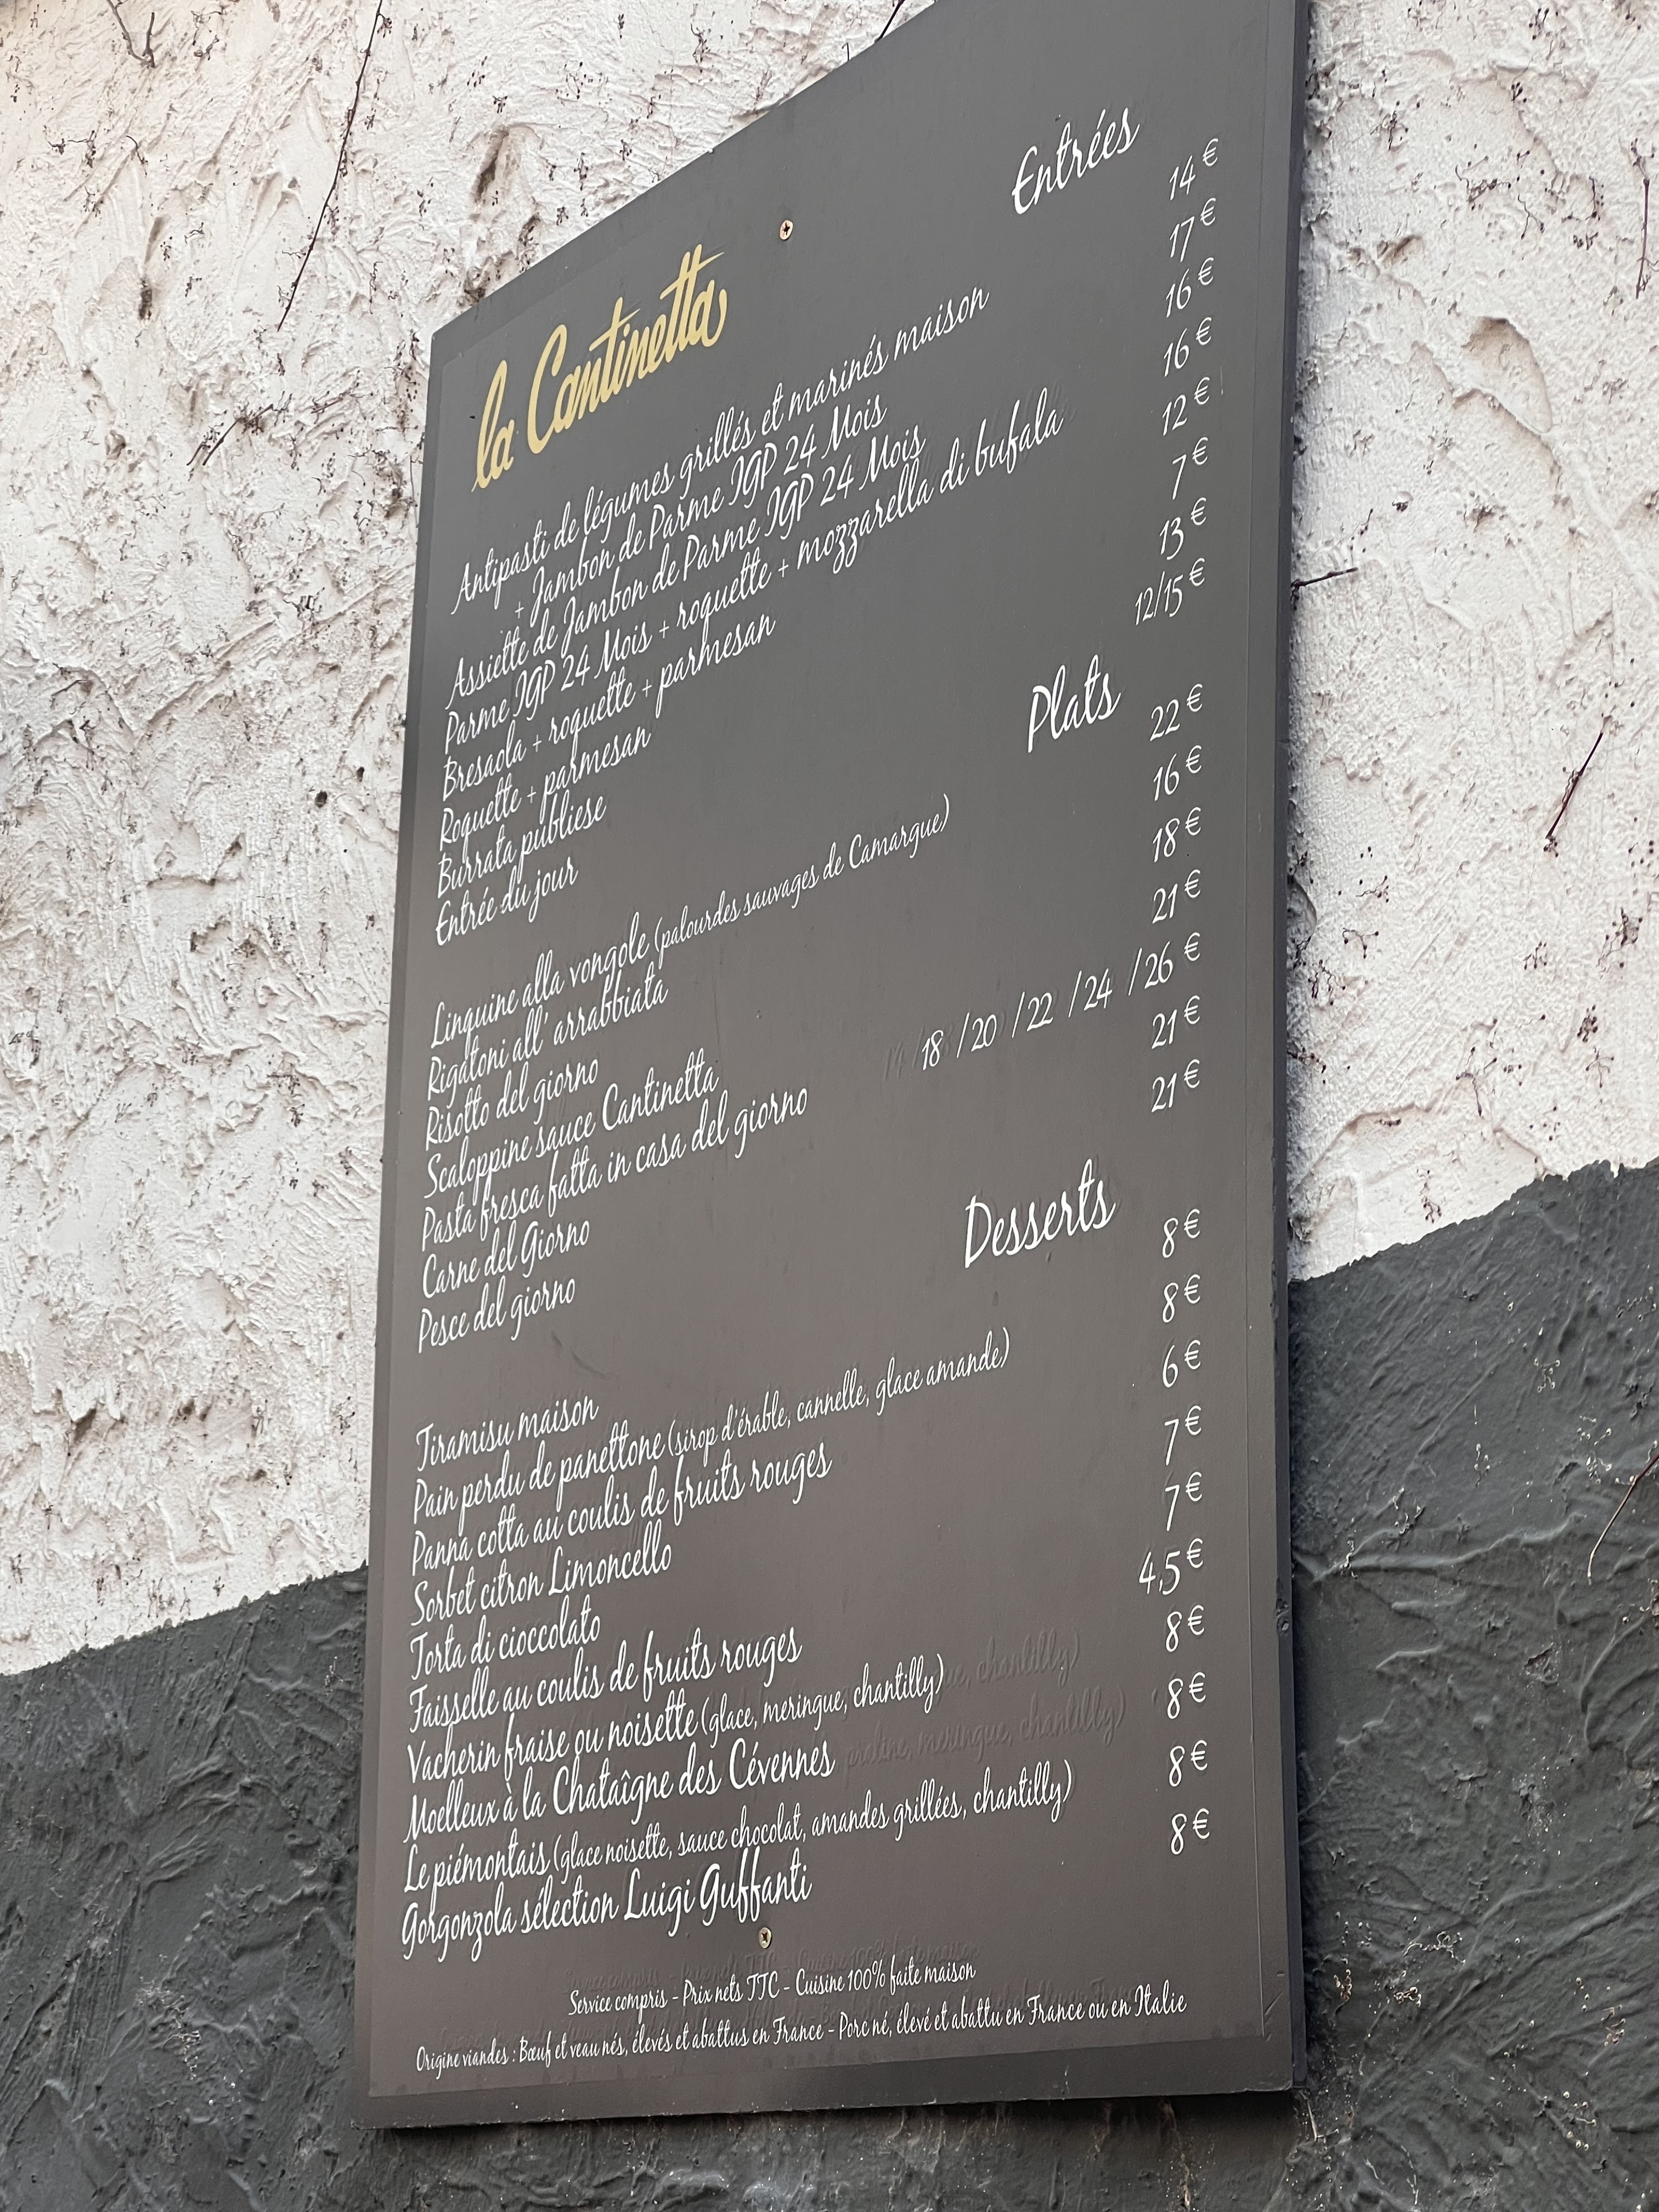 la Cantinetta
Entrées
Antipasti de légumes grillés et marinés maison 14 €
+ Jambon de Parme IGP 24 Mois 17 €
Assiette de Jambon de Parme IGP 24 Mois 16 €
Parme IGP 24 Mois + roquette + mozzarella di bufala 16 €
Bresaola + roquette + parmesan 12 €
Roquette + parmesan 7 €
Burrata publiese 13 €
Entrée du jour 12/15 €
Plats
Linguine alla vongole (palourdes sauvages de Camargue) 22 €
Rigatoni all' arrabbiata 16 €
Risotto del giorno 18 €
Scaloppine sauce Cantinetta 21 €
Pasta fresca fatta in casa del giorno 18 /20 /22 /24 /26 €
Carne del Giorno 21 €
Pesce del giorno 21 €
Desserts
Tiramisu maison 8 €
Pain perdu de panettone (sirop d'érable, cannelle, glace amande) 8 €
Panna cotta au coulis de fruits rouges 6 €
Sorbet citron Limoncello 7 €
Torta di cioccolato 7 €
Faisselle au coulis de fruits rouges 4,5 €
Vacherin fraise ou noisette (glace, meringue, chantilly) 8 €
Moelleux à la Chataîgne des Cévennes 8 €
Le piémontais (glace noisette, sauce chocolat, amandes grillées, chantilly) 8 €
Gorgonzola sélection Luigi Guffanti 8 €
Service compris - Prix nets TTC - Cuisine 100% faite maison
Origine viandes : Bœuf et veau nés, élevés et abattus en France - Porc né, élevé et abattu en France ou en Italie